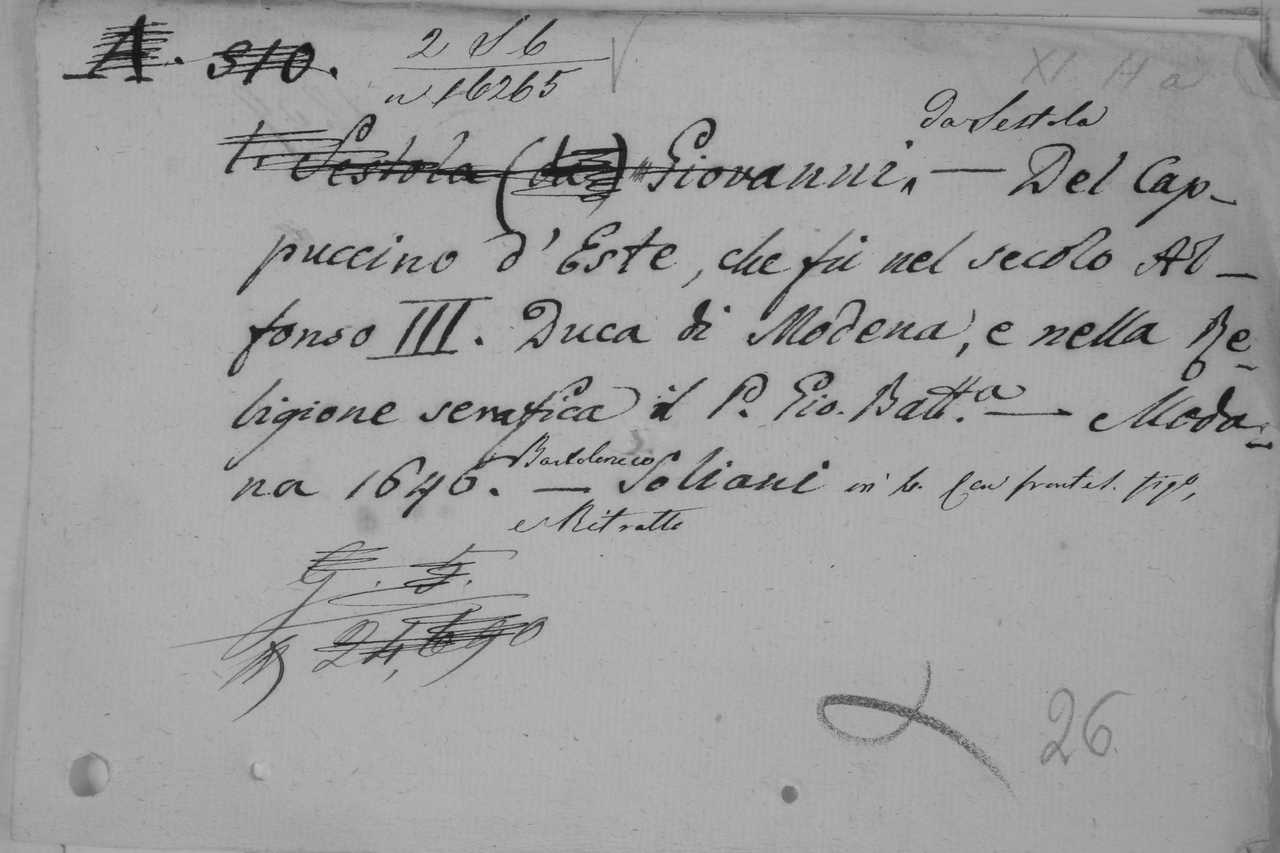 A. 510.
2 S 6
n 16265
XI H a
da Sestola
Sestola (da) Giovanni. — Del Cap-
puccino d'Este, che fù nel secolo Al-
fonso III. Duca di Modena, e nella Re-
ligione serafica il P. Gio. Batt.a — Moda-
na 1646. — Bartolomeo Soliani in 4. con frontesp. figo,
e Ritratto
24,690
26